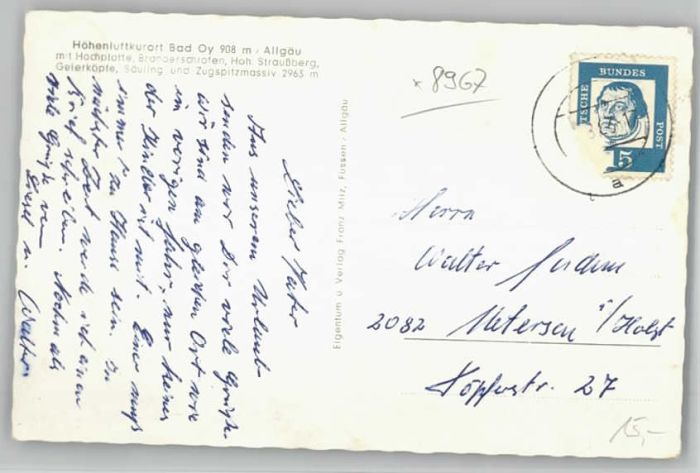 Höhenluftkurort Bad Oy 908 m · Allgäu
mit Hochplatte, Branderschrofen, Hoh. Straußberg,
Geierköpfe, Säuling und Zugspitzmassiv 2963 m
× 8967
DEUTSCHE BUNDESPOST
15
a
Lieber Vater
Aus unserem Urlaub
senden wir Dir viele Grüße
wir sind am gleichen Ort wie
im vorigen Jahr, nur keines
der Kinder ist mit. Einer muß
immer zu Hause sein. In
nächster Zeit werde ich einen
Brief schreiben. Nochmals
viele Grüße von
u. Walter
Eigentum u. Verlag Franz Milz, Füssen · Allgäu
Herrn
Walter
2082 Uetersen i/Holst
Töpferstr. 27
15,-